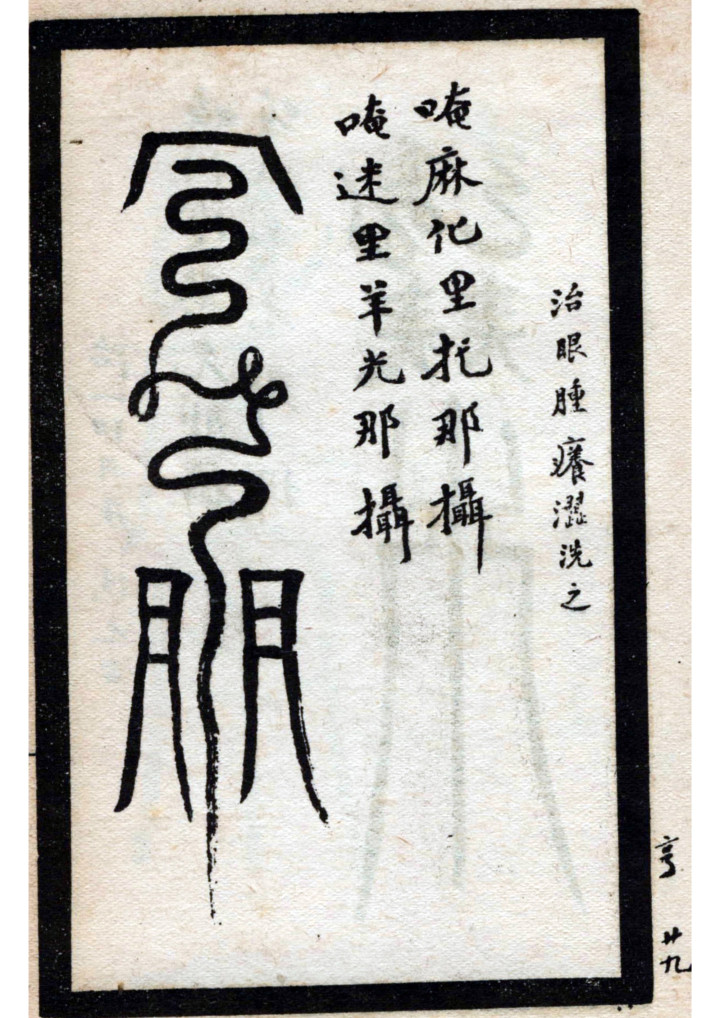 治眼腫癢澀洗之
唵麻化里托那攝
唵迷里羊光那攝
亨 廿九